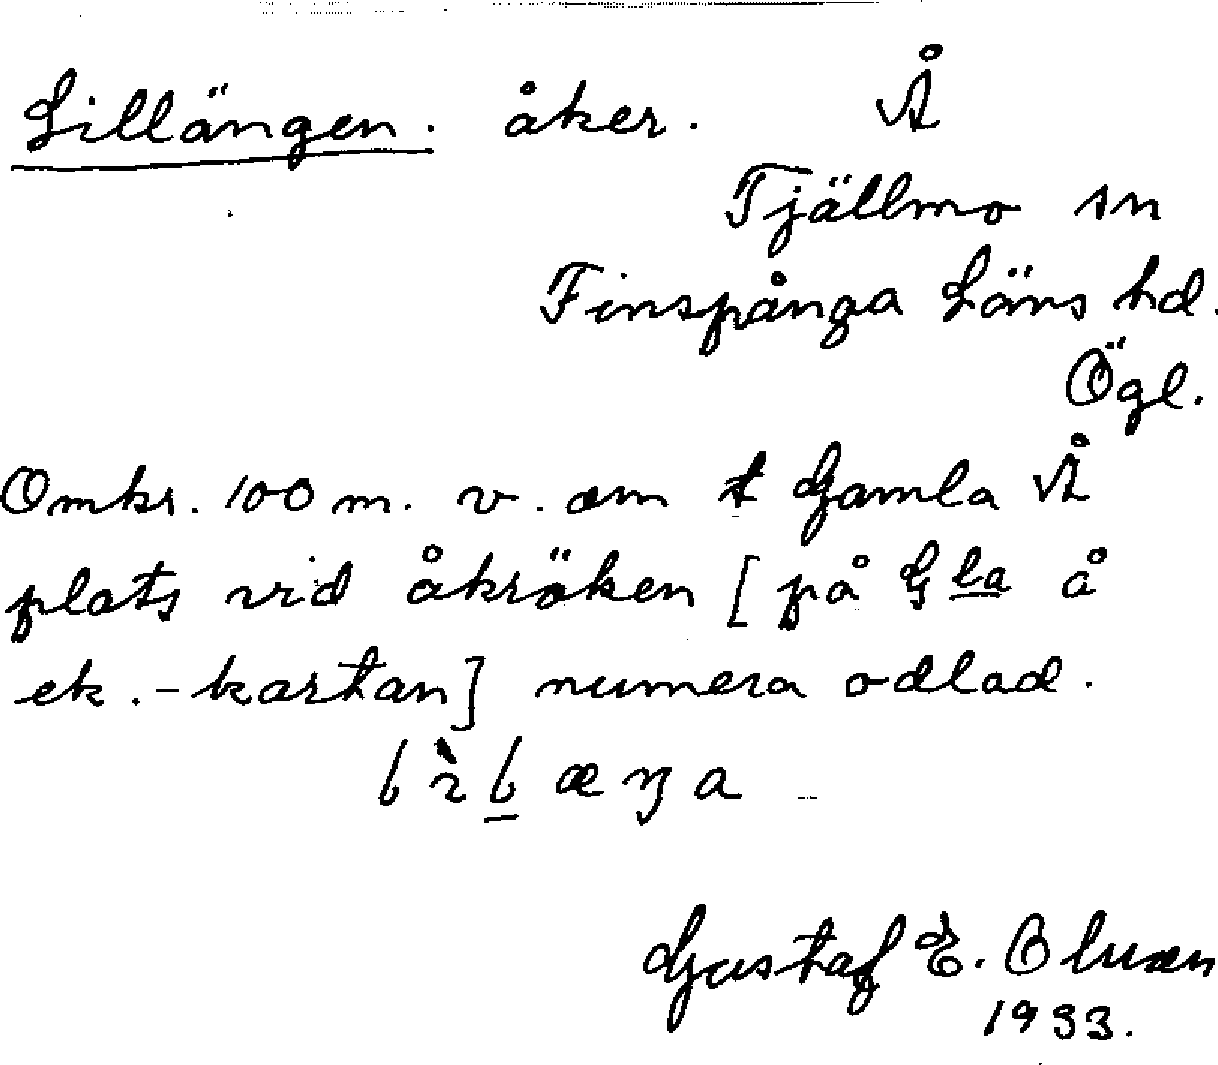 Lillängen. åker. Å
Tjällmo sn
Finspånga Läns hd.
Ögl.
Omkr. 100 m. v. om Gamla Å
plats vid åkröken [på G la å
ek.-kartan] numera odlad.
Gustaf E.
1933.